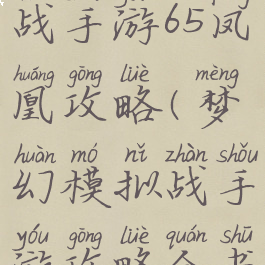 战手游65凤
huáng gōng lüè mèng
凰攻略(梦
huàn mó nǐ zhàn shǒu
幻模拟战手
yóu gōng lüè quán shū
游攻略全书